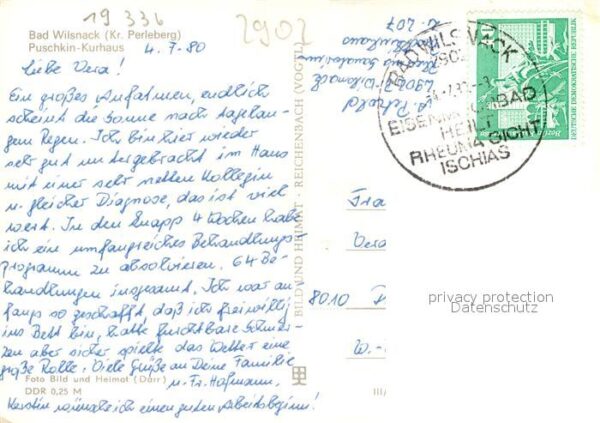 19 336
2902
Bad Wilsnack (Kr. Perleberg)
Puschkin-Kurhaus
4.7.80
Liebe Vera!
Ein großes Aufatmen, endlich
scheint die Sonne nach tagelan-
gem Regen. Ich bin hier wieder
sehr gut untergebracht im Haus
mit einer sehr netten Kollegin
u. gleicher Diagnose, das ist viel
wert. In den knapp 4 Wochen habe
ich ein umfangreiches Behandlungs-
programm zu absolvieren. 64 Be-
handlungen insgesamt. Ich war an-
fangs so geschafft, daß ich freiwillig
ins Bett bin, hatte furchtbare Schmer-
zen aber sicher spielte das Wetter eine
große Rolle. Viele Grüße an Deine Familie
u. Fr. Hofmann.
Foto Bild und Heimat (Darr)
DDR 0,25 M
Kerstin wünsche ich einen guten Arbeitsbeginn!
BILD UND HEIMAT REICHENBACH (VOGTL)
Z. 207
2903 Bad Wilsnack
BAD WILSNACK
2903
EISENMOORBAD
HEILT
RHEUMA GICHT
ISCHIAS
10
DEUTSCHE DEMOKRATISCHE REPUBLIK
Berlin
Fra
Vera
8010
W.-
III/
privacy protection
Datenschutz